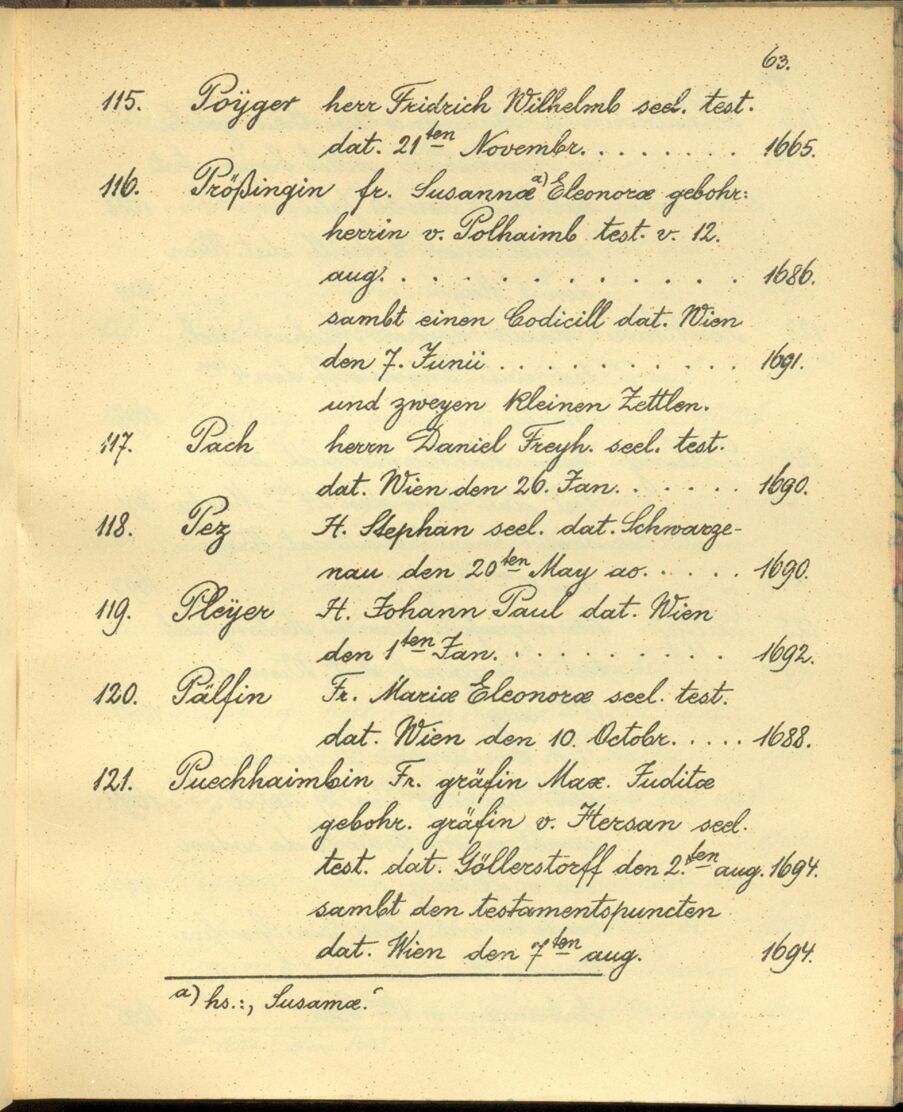 63.
115. Poÿger herr Fridrich Wilhelmb seel. test.
dat. 21ten Novembr. . . . . . . . 1665.
116. Prößingin fr. Susannæ a) Eleonoræ gebohr:
herrin v. Polhaimb test. v. 12.
aug. . . . . . . . . . . . . . 1686.
sambt einen Codicill dat. Wien
den 7. Junii . . . . . . . . . . . 1691.
und zweyen kleinen Zettlen.
117. Pach herrn Daniel Freyh. seel. test.
dat. Wien den 26. Jan. . . . . . 1690.
118. Pez H. Stephan seel. dat. Schwarze-
nau den 20ten May ao. . . . . 1690.
119. Pleÿer H. Johann Paul dat. Wien
den 1ten Jan. . . . . . . . . . 1692.
120. Pälfin Fr. Mariæ Eleonoræ seel. test.
dat. Wien den 10. Octobr. . . . . 1688.
121. Puechhaimbin Fr. gräfin Max. Juditæ
gebohr. gräfin v. Hersan seel.
test. dat. Göllerstorff den 2.ten aug. 1694.
sambt den testamentspuncten
dat. Wien den 7ten aug. 1694.
a) hs.: „Susamæ.“